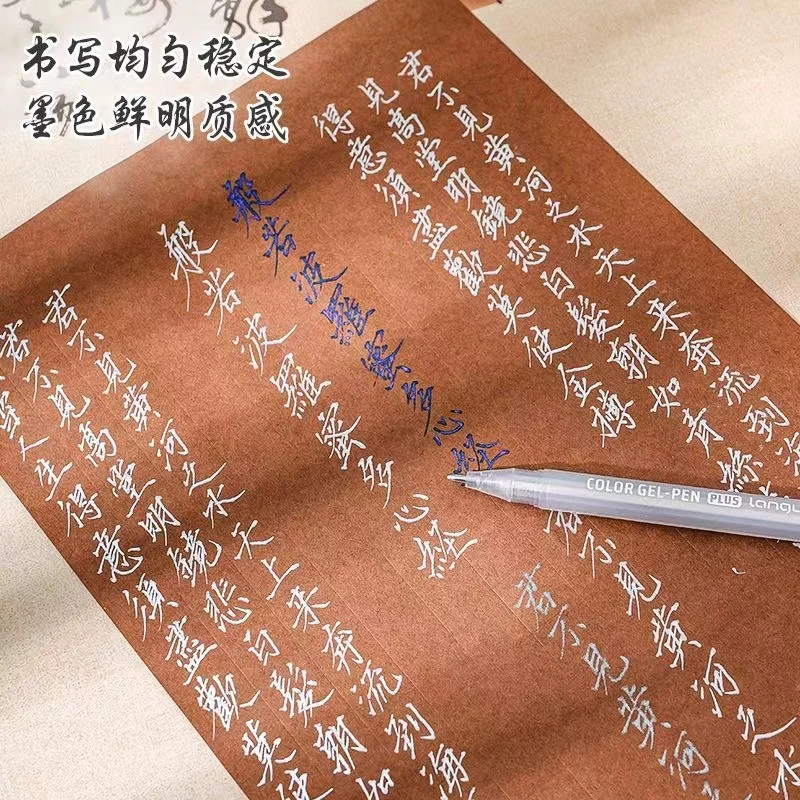 书写均匀稳定
墨色鲜明质感
君不見黄河之水天上来奔流到
見高堂明鏡悲白髮朝如青絲
得意須盡歡莫使金樽
般若波羅蜜多心経
般若波羅蜜多心経
COLOR GEL-PEN PLUS langu
不見黄河之水
君不見黄河之
君不見黄河之水天上来奔流到海
君不見高堂明鏡悲白髮朝如
人生得意須盡歡莫使